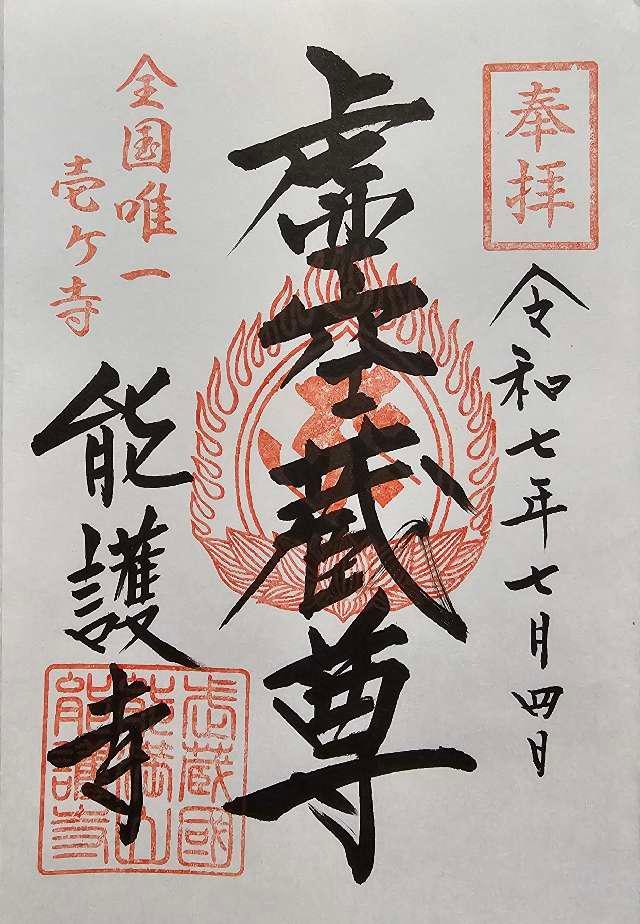 奉拝
令和七年七月四日
虚空蔵尊
全国唯一
壱ケ寺
能護寺
武蔵國
能満山
能護寺